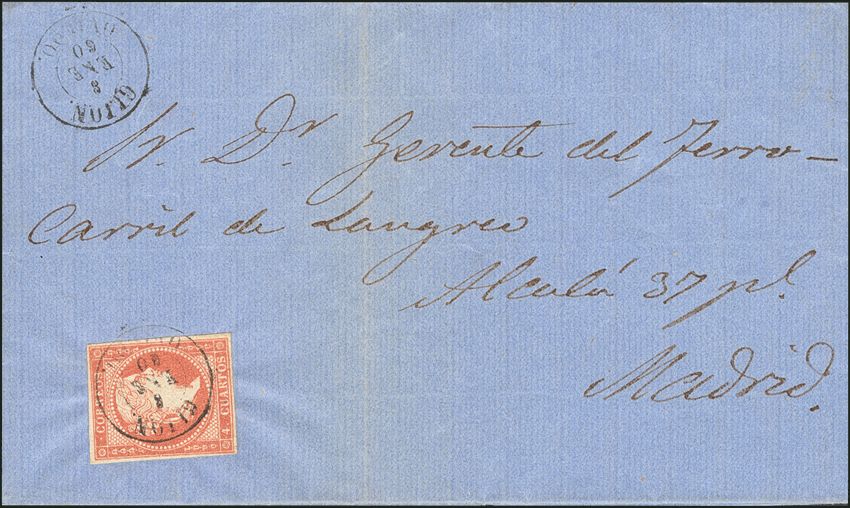 OVIEDO.
8
ENE
60
GIJON
Sr. Dr. Gerente del Ferro-
Carril de Langreo
Alcalá 37 pl.
Madrid.
CORREOS
4 CUARTOS
8
ENE
60
GIJON